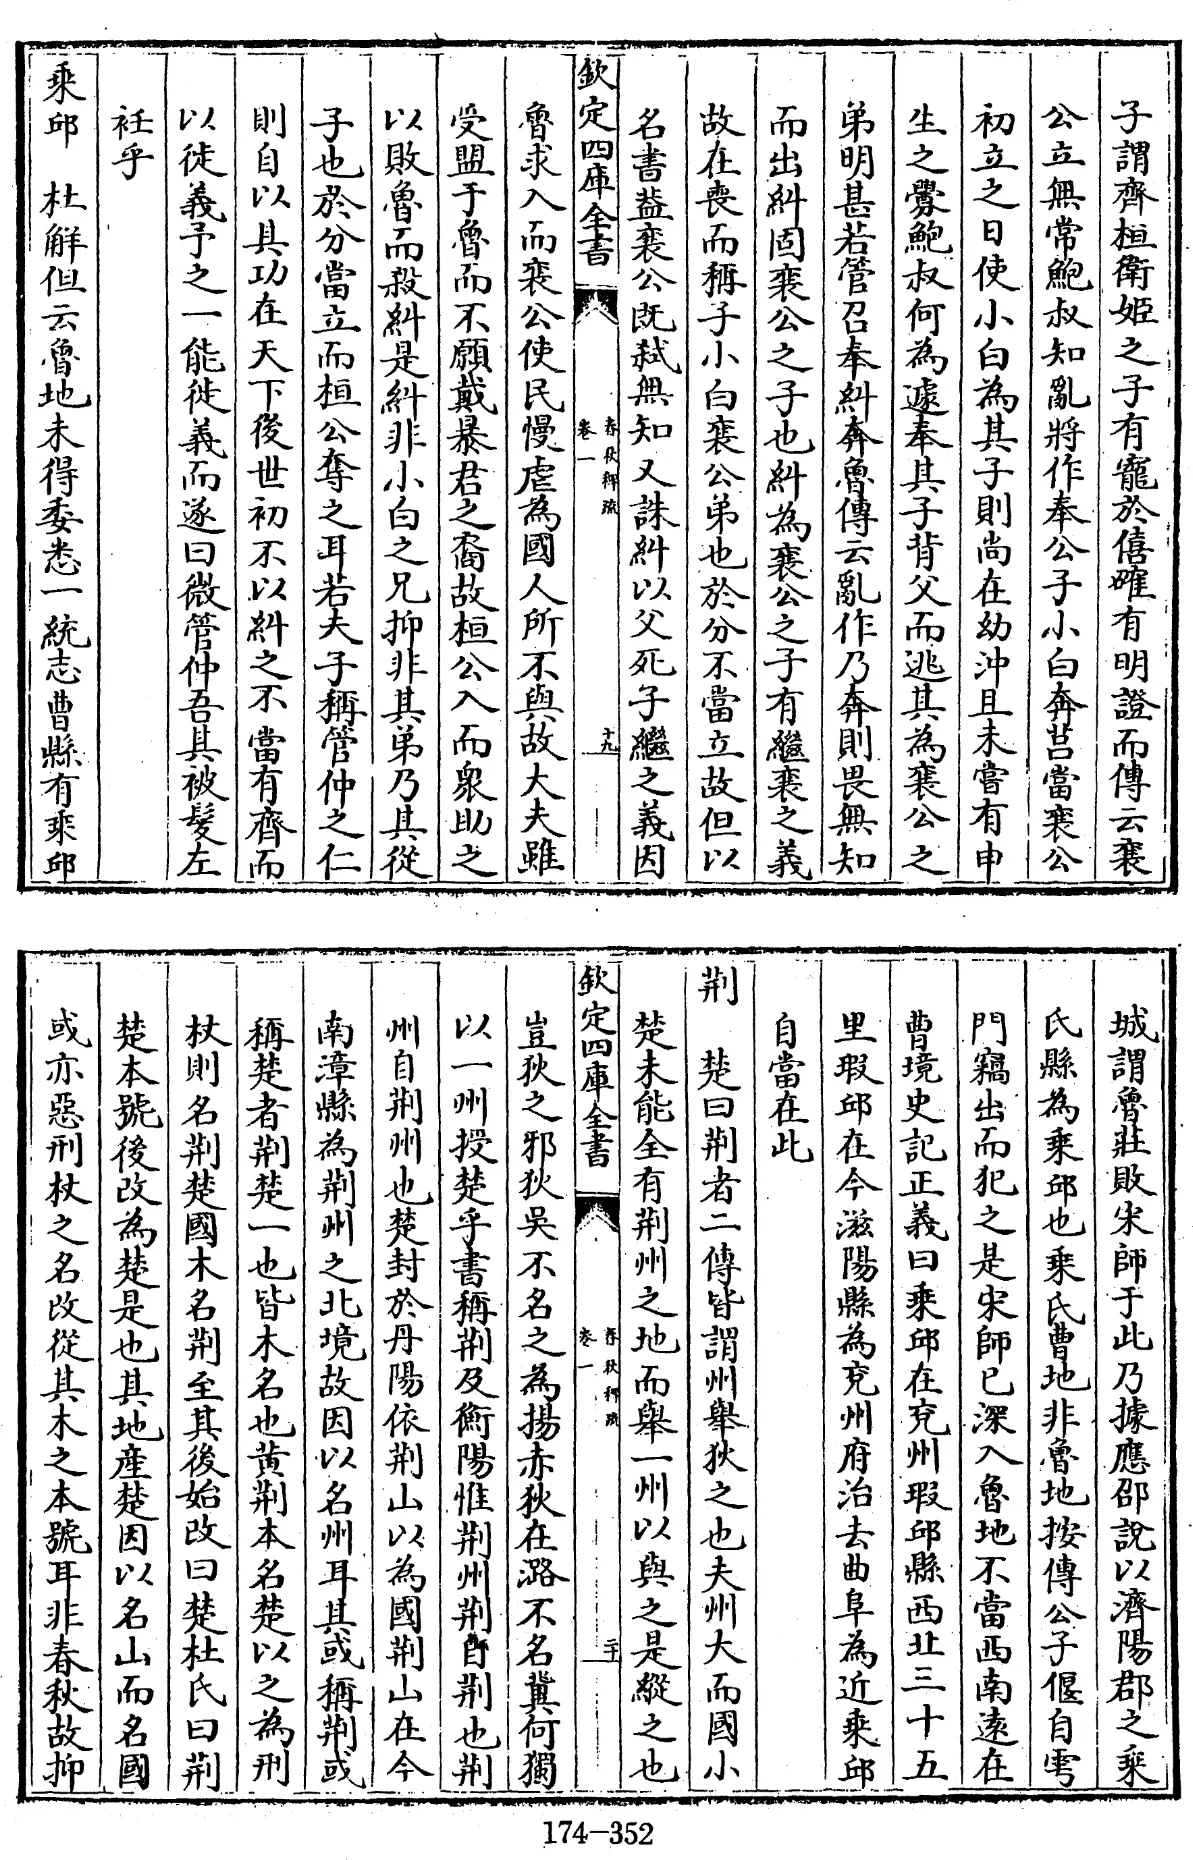 子謂齊桓衛姬之子有寵於僖確有明證而傳云襄
公立無常鮑叔知亂將作奉公子小白奔莒當襄公
初立之日使小白為其子則尚在幼沖且未嘗有申
生之釁鮑叔何為遽奉其子背父而逃其為襄公之
弟明甚若管召奉糾奔魯傳云亂作乃奔則畏無知
而出糾固襄公之子也糾為襄公之子有繼襄之義
故在喪而稱子小白襄公弟也於分不當立故但以
名書葢襄公既弒無知又誅糾以父死子繼之義因
欽定四庫全書
春秋稗疏
卷一
十九
魯求入而襄公使民慢虐為國人所不與故大夫雖
受盟于魯而不願戴暴君之裔故桓公入而衆助之
以敗魯而殺糾是糾非小白之兄抑非其弟乃其從
子也於分當立而桓公奪之耳若夫子稱管仲之仁
則自以其功在天下後世初不以糾之不當有齊而
以徒義予之一能徙義而遂曰微管仲吾其被髮左
衽乎
乘邱 杜解但云魯地未得委悉一統志曹縣有乘邱
城謂魯莊敗宋師于此乃據應邵說以濟陽郡之乘
氏縣為乘邱也乘氏曹地非魯地按傳公子偃自雩
門竊出而犯之是宋師已深入魯地不當西南遠在
曹境史記正義曰乘邱在兖州瑕邱縣西北三十五
里瑕邱在今滋陽縣為兖州府治去曲阜為近乘邱
自當在此
荆 楚曰荆者二傳皆謂州舉狄之也夫州大而國小
楚未能全有荆州之地而舉一州以與之是縱之也
欽定四庫全書
春秋稗疏
卷一
二十
豈狄之邪狄吳不名之為揚赤狄在潞不名冀何獨
以一州授楚乎書稱荆及衡陽惟荆州荆自荆也荆
州自荆州也楚封於丹陽依荆山以為國荆山在今
南漳縣為荆州之北境故因以名州耳其或稱荆或
稱楚者荆楚一也皆木名也黄荆本名楚以之為刑
杖則名荆楚國木名荆至其後始改曰楚杜氏曰荆
楚本號後改為楚是也其地產楚因以名山而名國
或亦惡刑杖之名改從其木之本號耳非春秋故抑
174-352